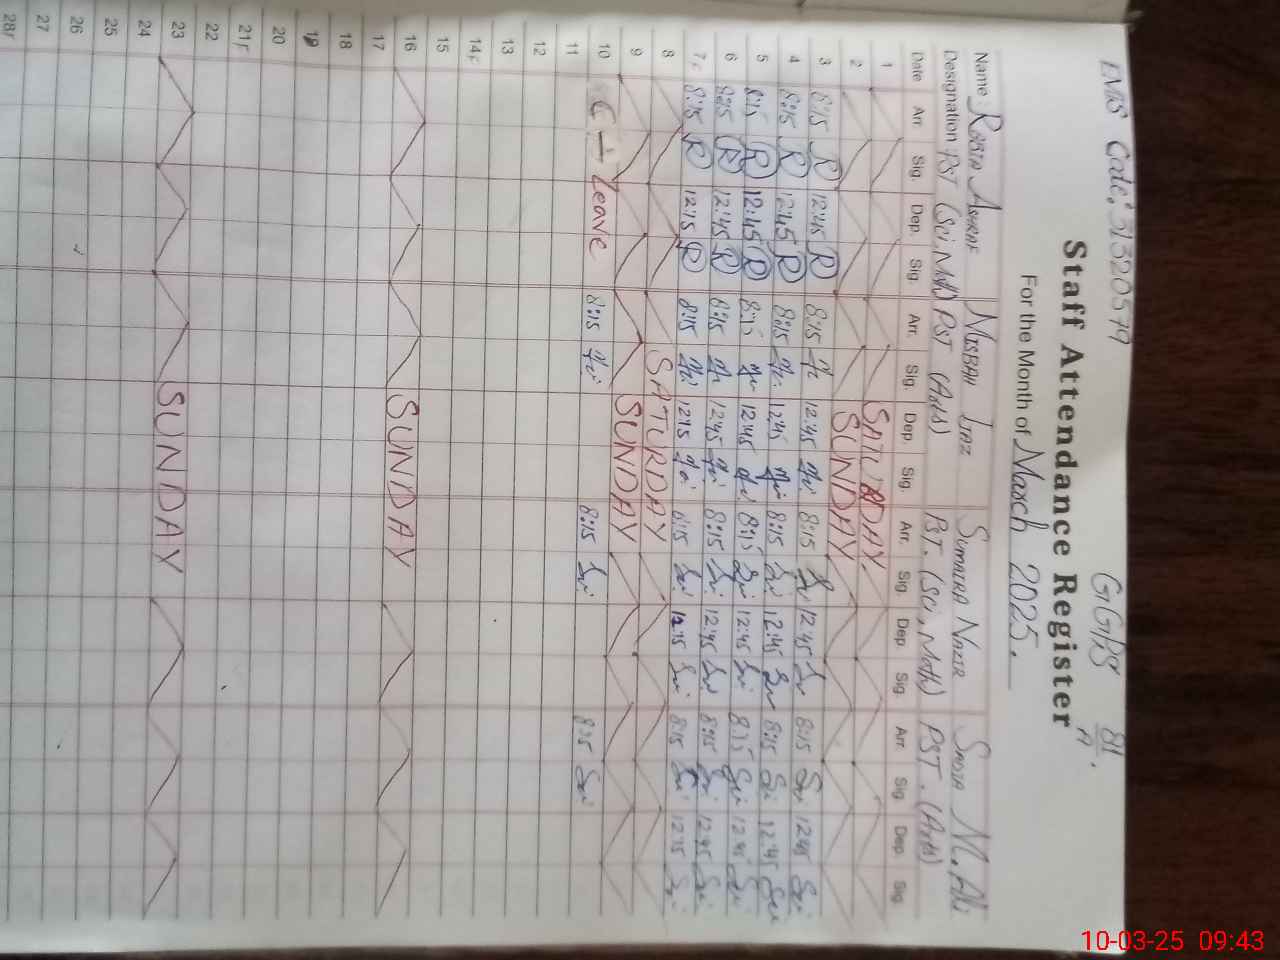 EMIS Code: 31320579
GGPS 81/A.
Staff Attendance Register
For the Month of March 2025.
Name: Rabia Ashraf Misbah Ijaz Sumaira Nazir Sadia M. Ali
Designation PST (Sci Math) PST (Arts) PST. (Sci, Math) PST. (Arts)
Date Arr. Sig. Dep. Sig. Arr. Sig. Dep. Sig. Arr. Sig. Dep. Sig. Arr. Sig. Dep. Sig.
1 SATURDAY
2 SUNDAY
3 8:15 R 12:45 R 8:15 12:45 8:15 12:45 8:15 12:45
4 8:15 R 12:45 R 8:15 12:45 8:15 12:45 8:15 12:45
5 8:15 R 12:45 R 8:15 12:45 8:15 12:45 8:15 12:45
6 8:15 R 12:45 R 8:15 12:45 8:15 12:45 8:15 12:45
7F 8:15 R 12:15 R 8:15 12:15 8:15 12:15 8:15 12:15
8 SATURDAY
9 SUNDAY
10 Leave 8:15 8:15 8:15
11
12
13
14F
15
16 SUNDAY
17
18
19
20
21F
22
23 SUNDAY
24
25
26
27
28F
10-03-25 09:43